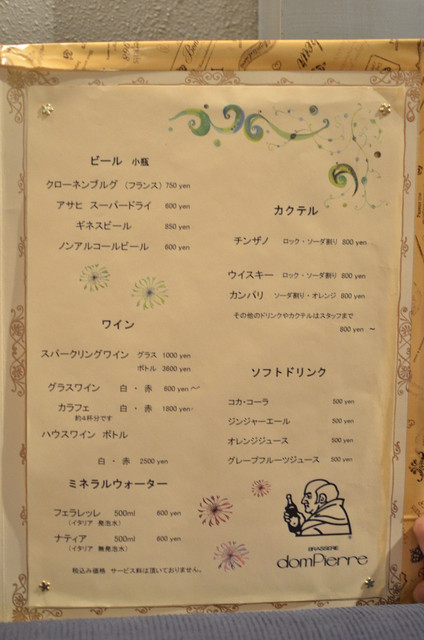 ビール 小瓶
クローネンブルグ （フランス） 750 yen
アサヒ スーパードライ 600 yen
ギネスビール 850 yen
ノンアルコールビール 600 yen
ワイン
スパークリングワイン グラス 1000 yen
ボトル 3600 yen
グラスワイン 白 ・ 赤 600 yen～
カラフェ 白 ・ 赤 1800 yen
約4杯分です
ハウスワイン ボトル
白 ・ 赤 2500 yen
ミネラルウォーター
フェラレッレ 500ml 600 yen
（イタリア 発泡水）
ナティア 500ml 600 yen
（イタリア 無発泡水）
税込み価格 サービス料は頂いておりません。
カクテル
チンザノ ロック・ソーダ割り 800 yen
ウイスキー ロック・ソーダ割り 800 yen
カンパリ ソーダ割り・オレンジ 800 yen
その他のドリンクやカクテルはスタッフまで
800 yen ～
ソフトドリンク
コカ・コーラ 500 yen
ジンジャーエール 500 yen
オレンジジュース 500 yen
グレープフルーツジュース 500 yen
BRASSERIE
domPierre